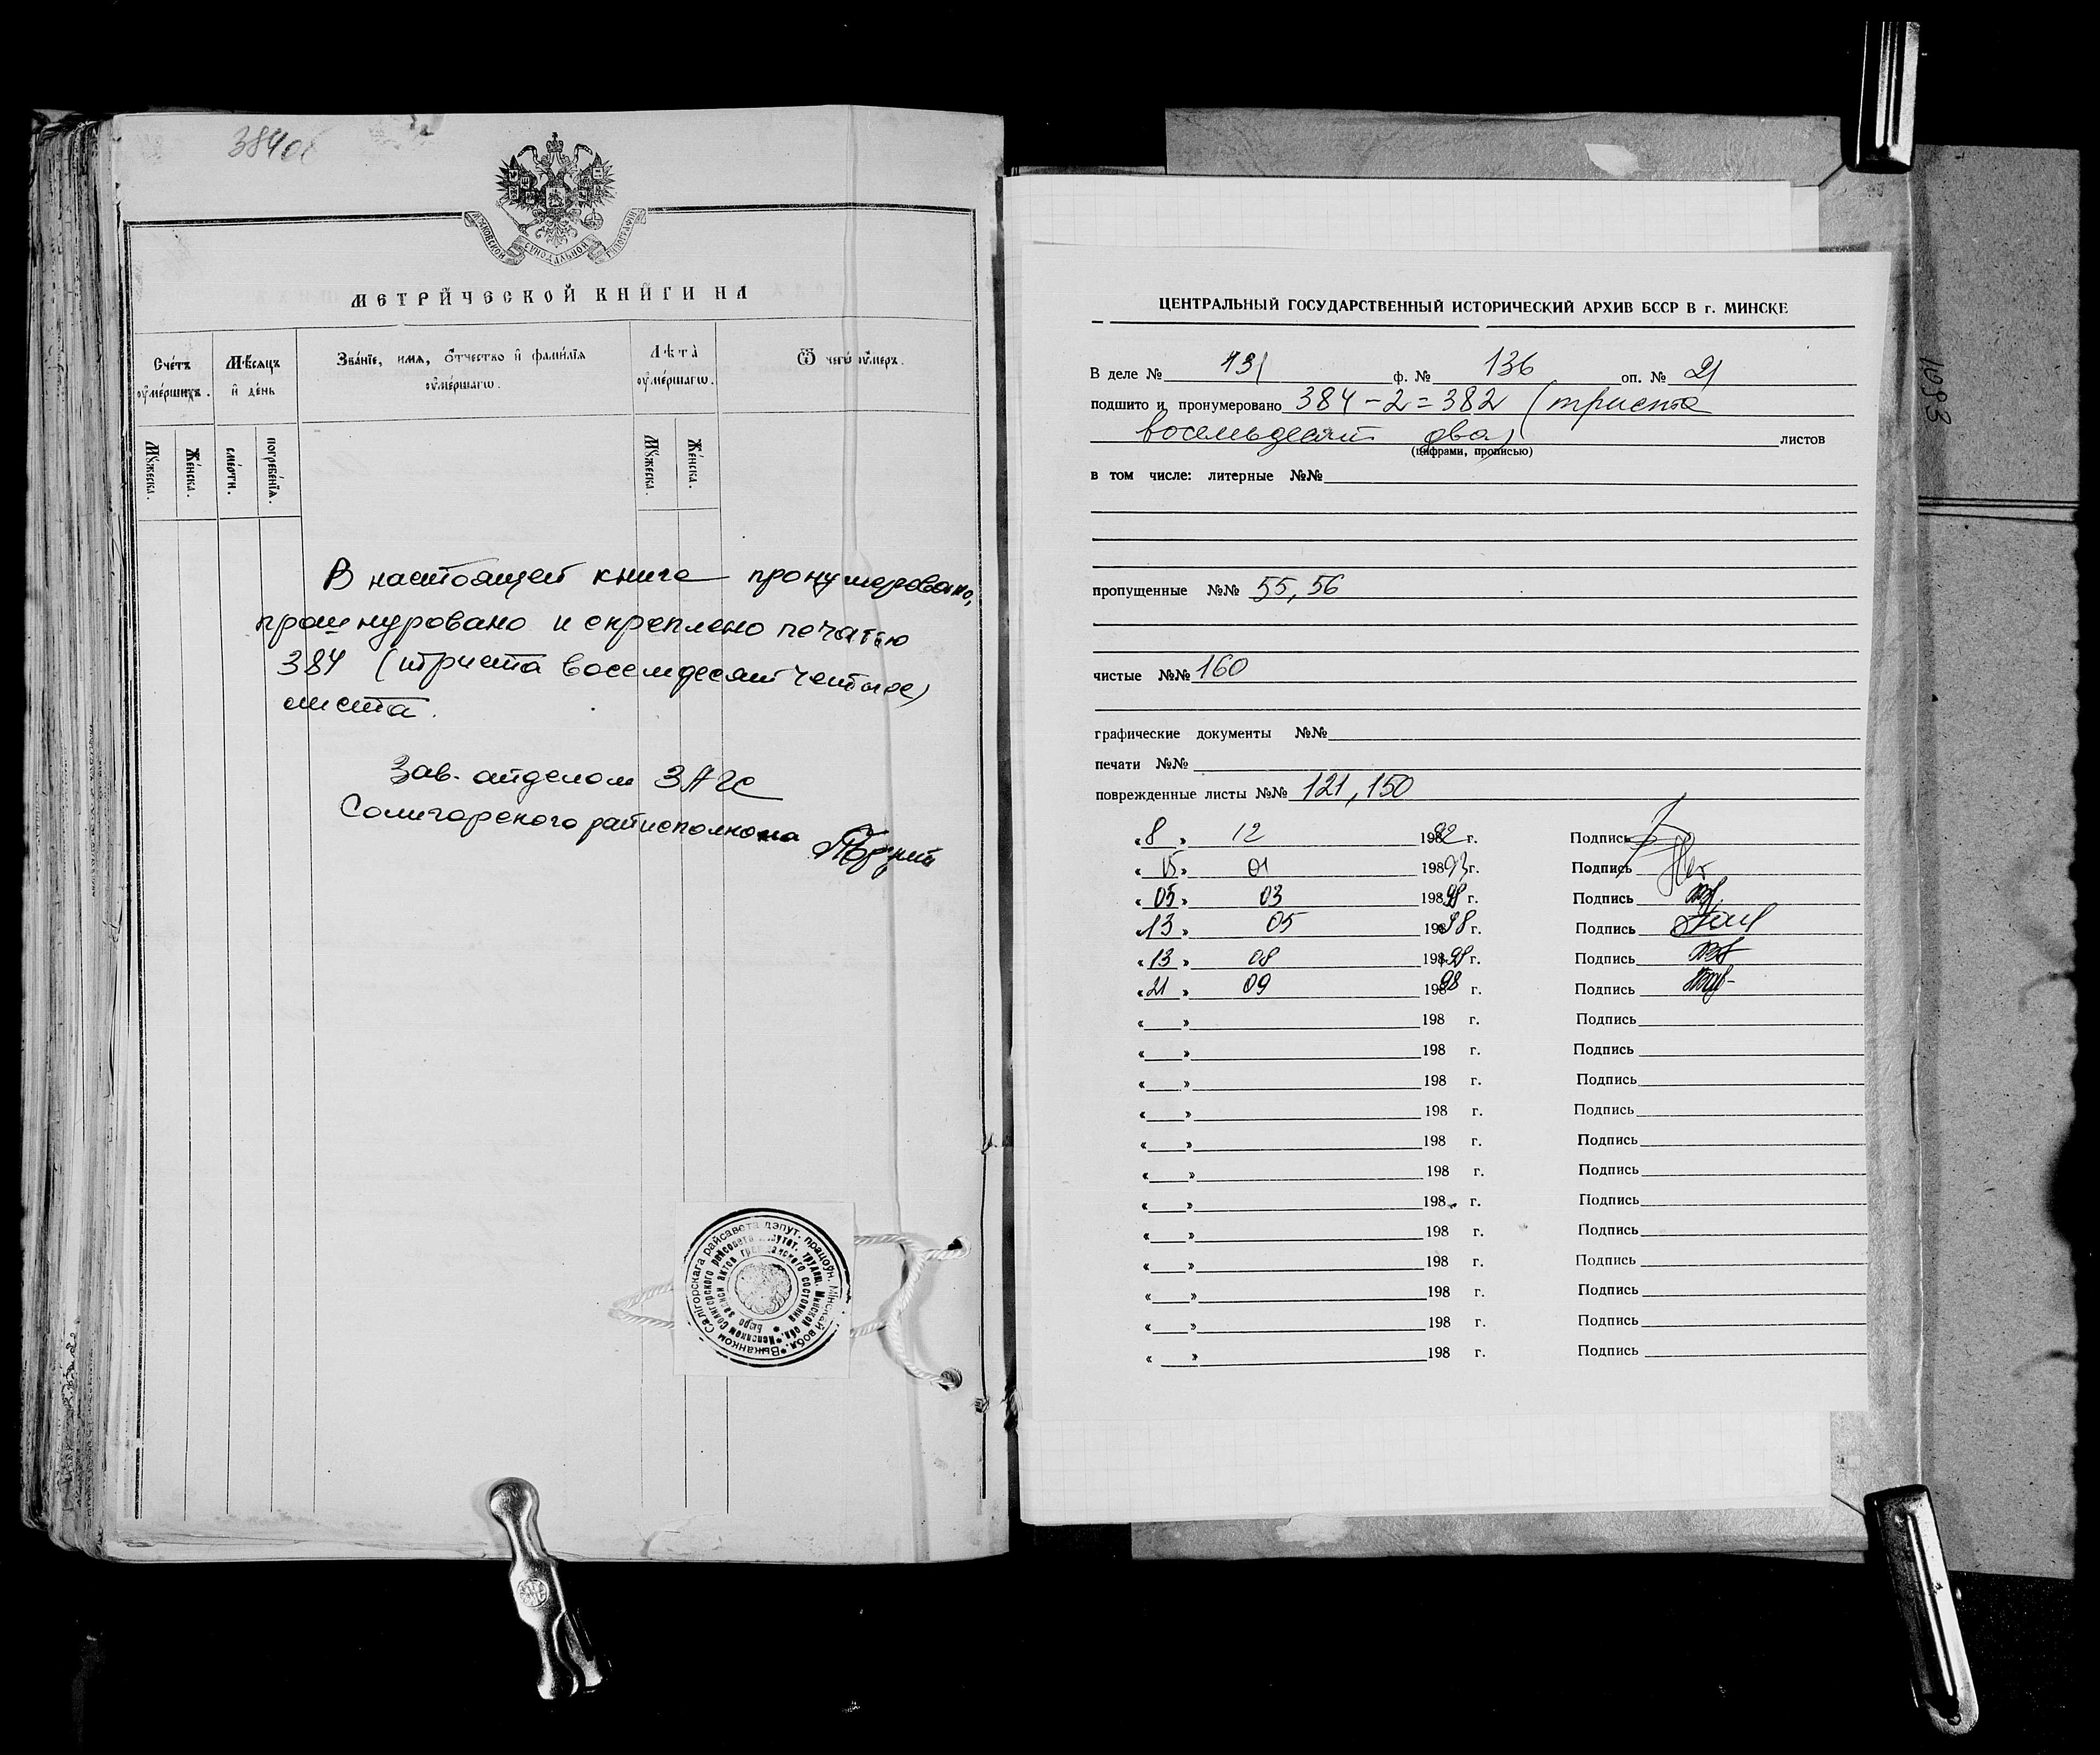 384об
МОСКОВСКОЙ СѴНОДАЛЬНОЙ ТѴПОГРАФІИ
МЕТРИ́ЧЕСКОЙ КНИ́ГИ НА
Сче́тъ ᲂу҆ме́ршихъ.
Мѣ́сяцъ и҆ день
Зва́нїе, имя, ѻ҆́тчество и҆ фами́лїя ᲂу҆ме́ршагѡ.
Лѣ́та ᲂу҆ме́ршагѡ.
Ѿ чегѡ̀ ᲂу҆́меръ.
Мꙋ́жеска.
Же́нска.
сме́рти.
погребе́нїѧ.
Мꙋ́жеска.
Же́нска.
В настоящей книге пронумеровано,
прошнуровано и скреплено печатью
384 (триста восемдесят четыре)
листа.
Зав. отделом ЗАГС
Солигорского райисполкома
Выканком Салігорскага райсавета дэпут. працоўн. Мінскай вобл.
Исполком Солигорского райсовета депутат. трудящ. Минской обл.
бюро записи актов гражданского состояния
ЦЕНТРАЛЬНЫЙ ГОСУДАРСТВЕННЫЙ ИСТОРИЧЕСКИЙ АРХИВ БССР В г. МИНСКЕ
В деле № 131 ф. № 136 оп. № 21
подшито и пронумеровано 384-2=382 (триста
восемьдесят два) листов
(цифрами, прописью)
в том числе: литерные №№
пропущенные №№ 55, 56
чистые №№ 160
графические документы №№
печати №№
поврежденные листы №№ 121, 150
«8» 12 1982 г. Подпись
«15» 01 19893 г. Подпись
«05» 03 19898 г. Подпись
«13» 05 19898 г. Подпись
«13» 08 19898 г. Подпись
«21» 09 19898 г. Подпись
« » 198 г. Подпись
« » 198 г. Подпись
« » 198 г. Подпись
« » 198 г. Подпись
« » 198 г. Подпись
« » 198 г. Подпись
« » 198 г. Подпись
« » 198 г. Подпись
« » 198 г. Подпись
« » 198 г. Подпись
« » 198 г. Подпись
« » 198 г. Подпись
1093